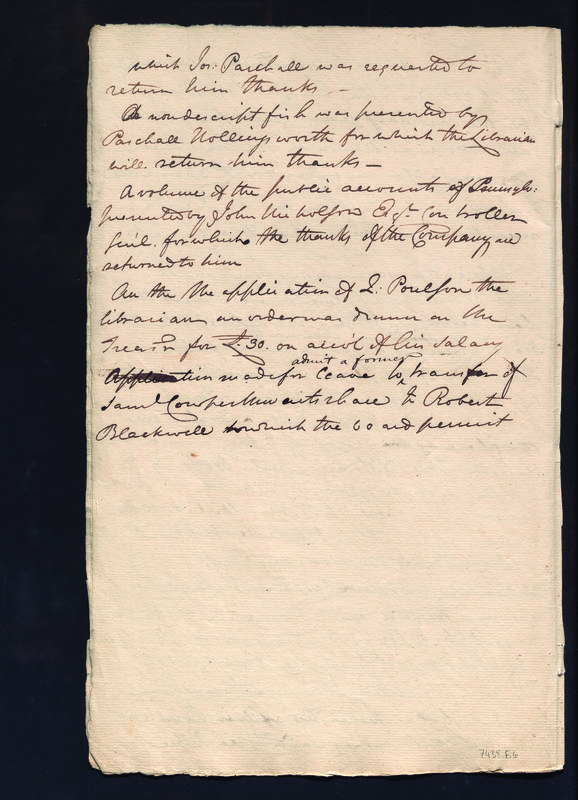 which Jos: Paschall was requested to
return him thanks —
A nondescript fish was presented by
Paschall Hollingsworth for which the Librarian
will return him thanks —
A volume of the public accounts of Pennsylv:
presented by John Nicholson Esqr. Controller
Gen'l. for which the thanks of the Company are
returned to him
On the the application of Z: Poulson the
librarian an order was drawn on the
Treasr for £.30. on acco't of his salary
Application made for leave to
admit a former
transfer of
Saml. Cowperthwaits share to Robert
Blackwell to which the board permit
7435.F6